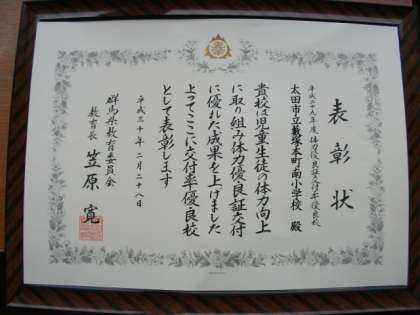 表彰状
平成二十九年度体力優良証交付率優良校
太田市立藪塚本町南小学校 殿
貴校は児童生徒の体力向上
に取り組み体力優良証交付
に優れた成果を上げました
よってここに交付率優良校
として表彰します
平成三十年二月二十八日
群馬県教育委員会
教育長 笠原 寛